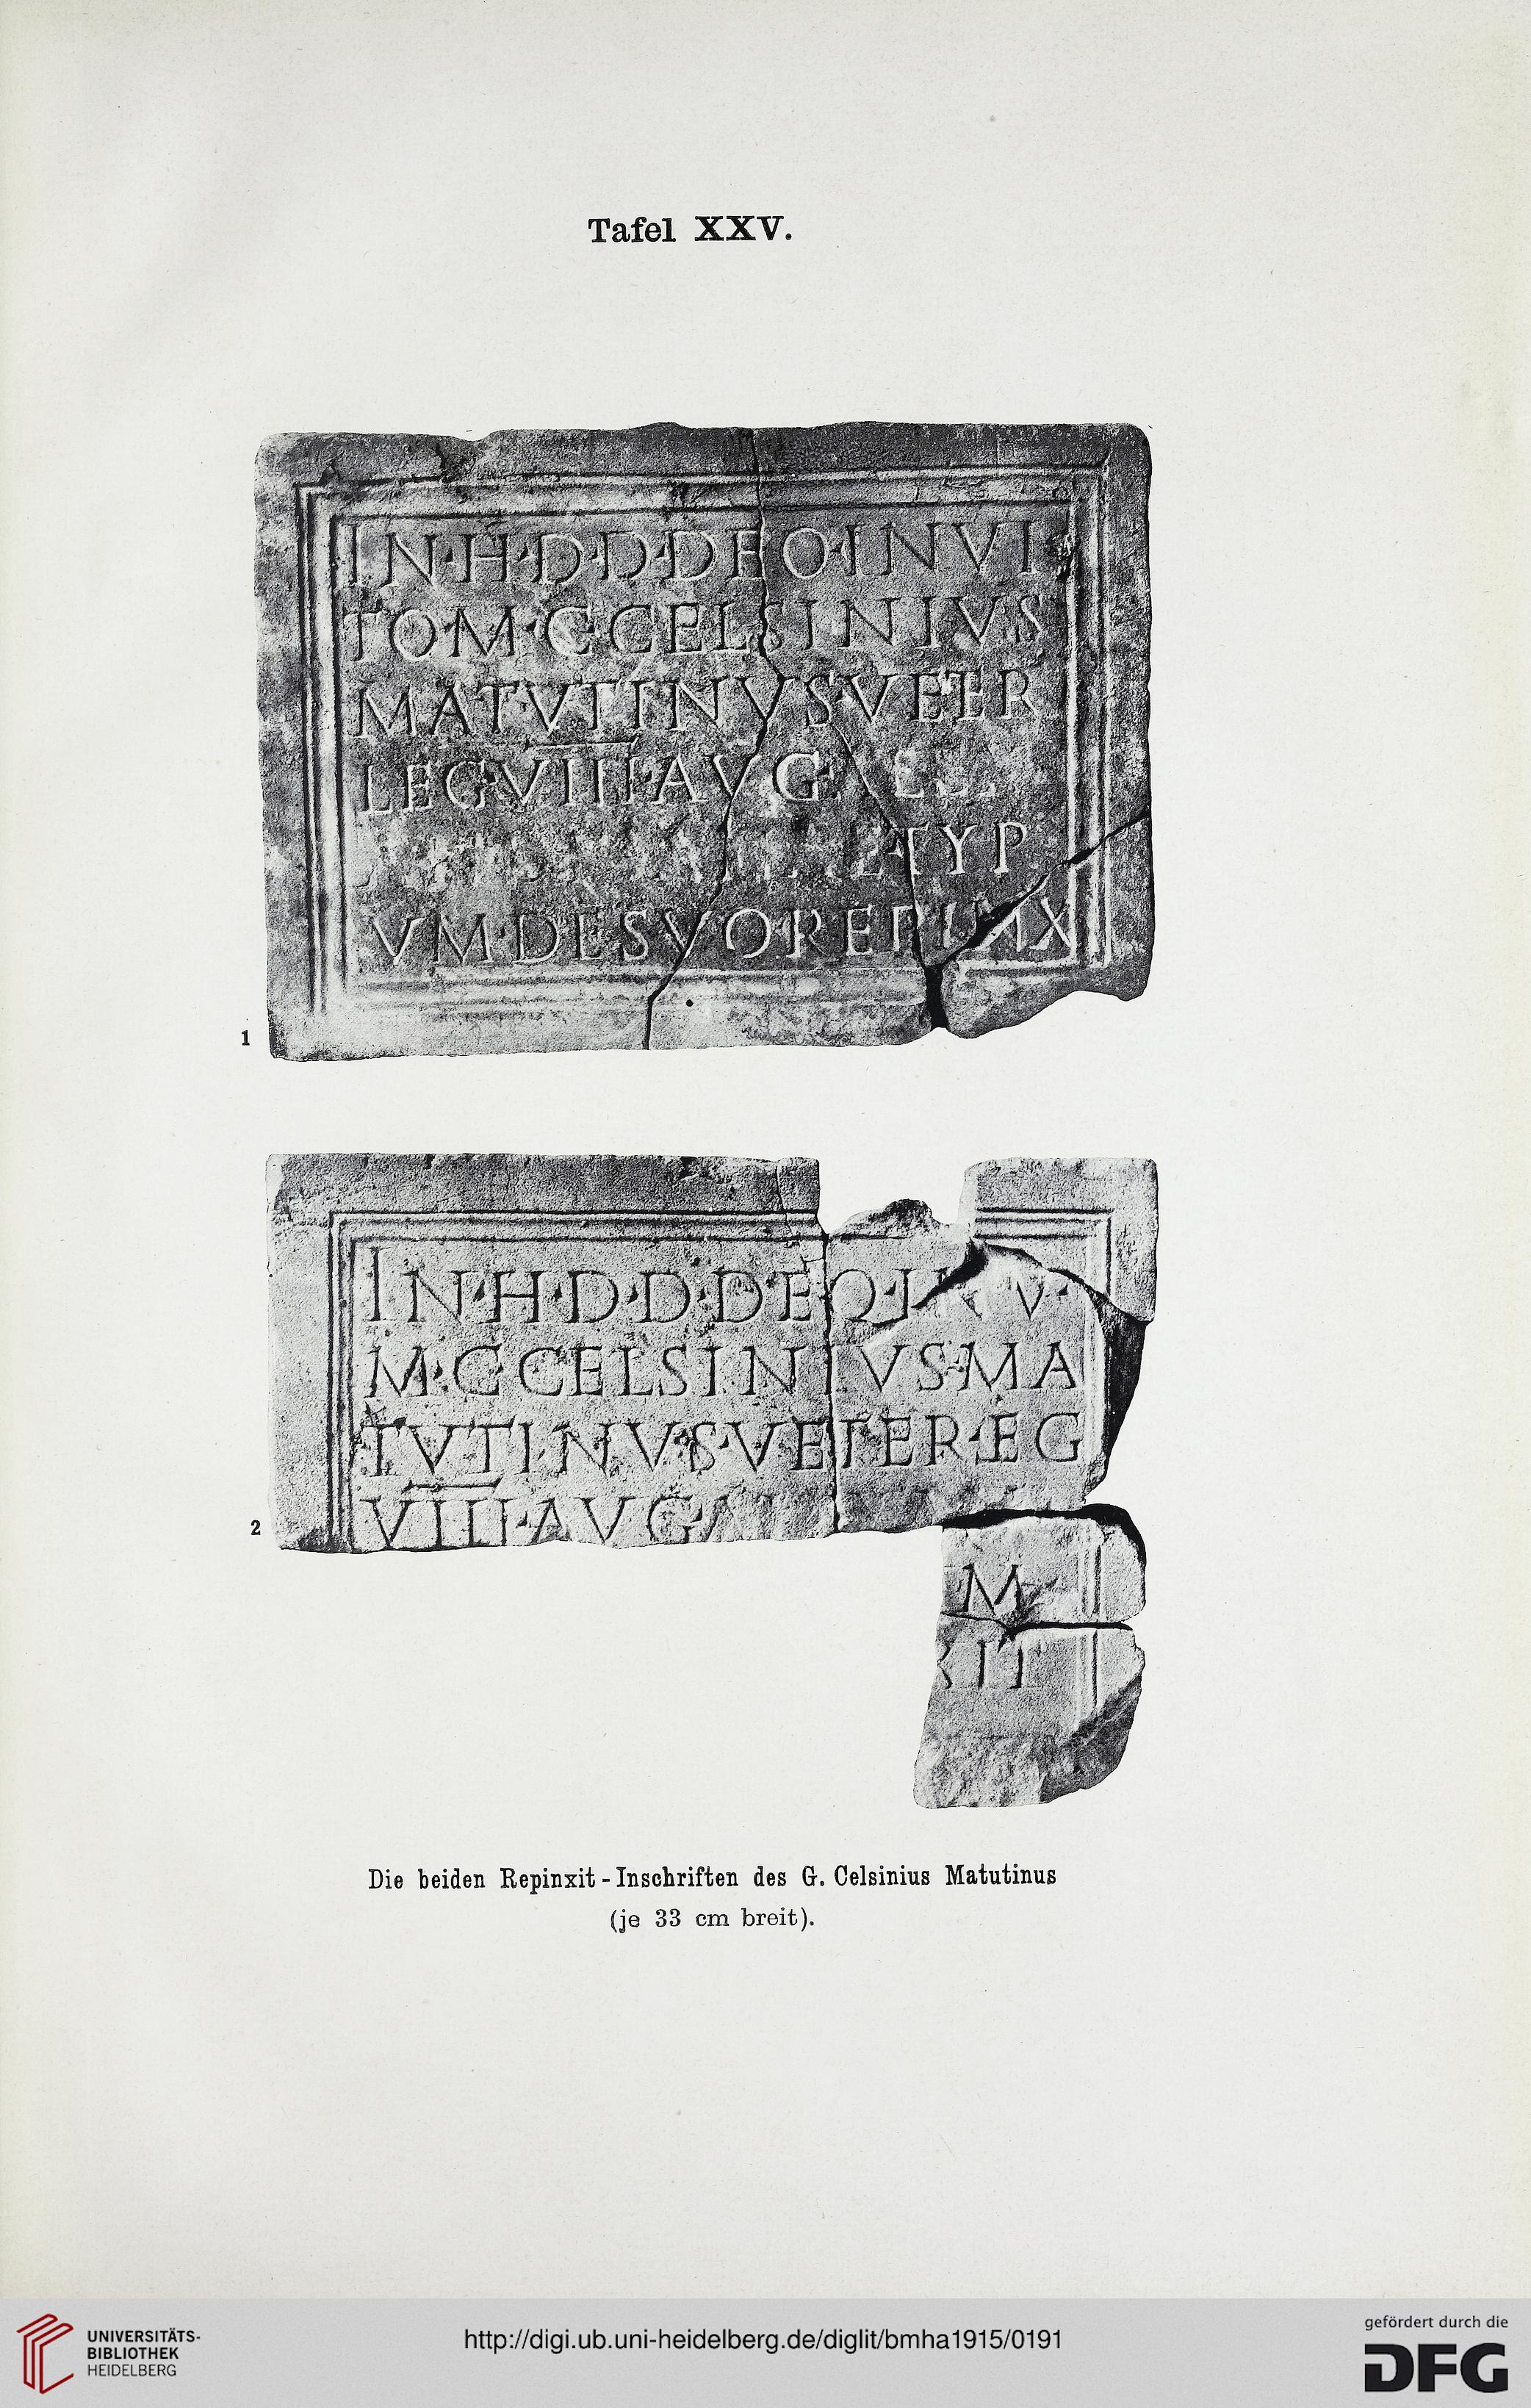 Tafel XXV.
IN·H·D·D·DEO·INVI
TO·M·G·CELSINIVS
MATVTINVS·VETER
LEG·VIII·AVG·
TYP
VM·DE·SVO·REPINX
1
IN·H·D·D·DEO·
M·G·CELSINIVS·MA
TVTINVS·VETER·LEG
VIII·AVG·
M
XIT
2
Die beiden Repinxit-Inschriften des G. Celsinius Matutinus
(je 33 cm breit).
UNIVERSITÄTS-
BIBLIOTHEK
HEIDELBERG
http://digi.ub.uni-heidelberg.de/diglit/bmha1915/0191
gefördert durch die
DFG